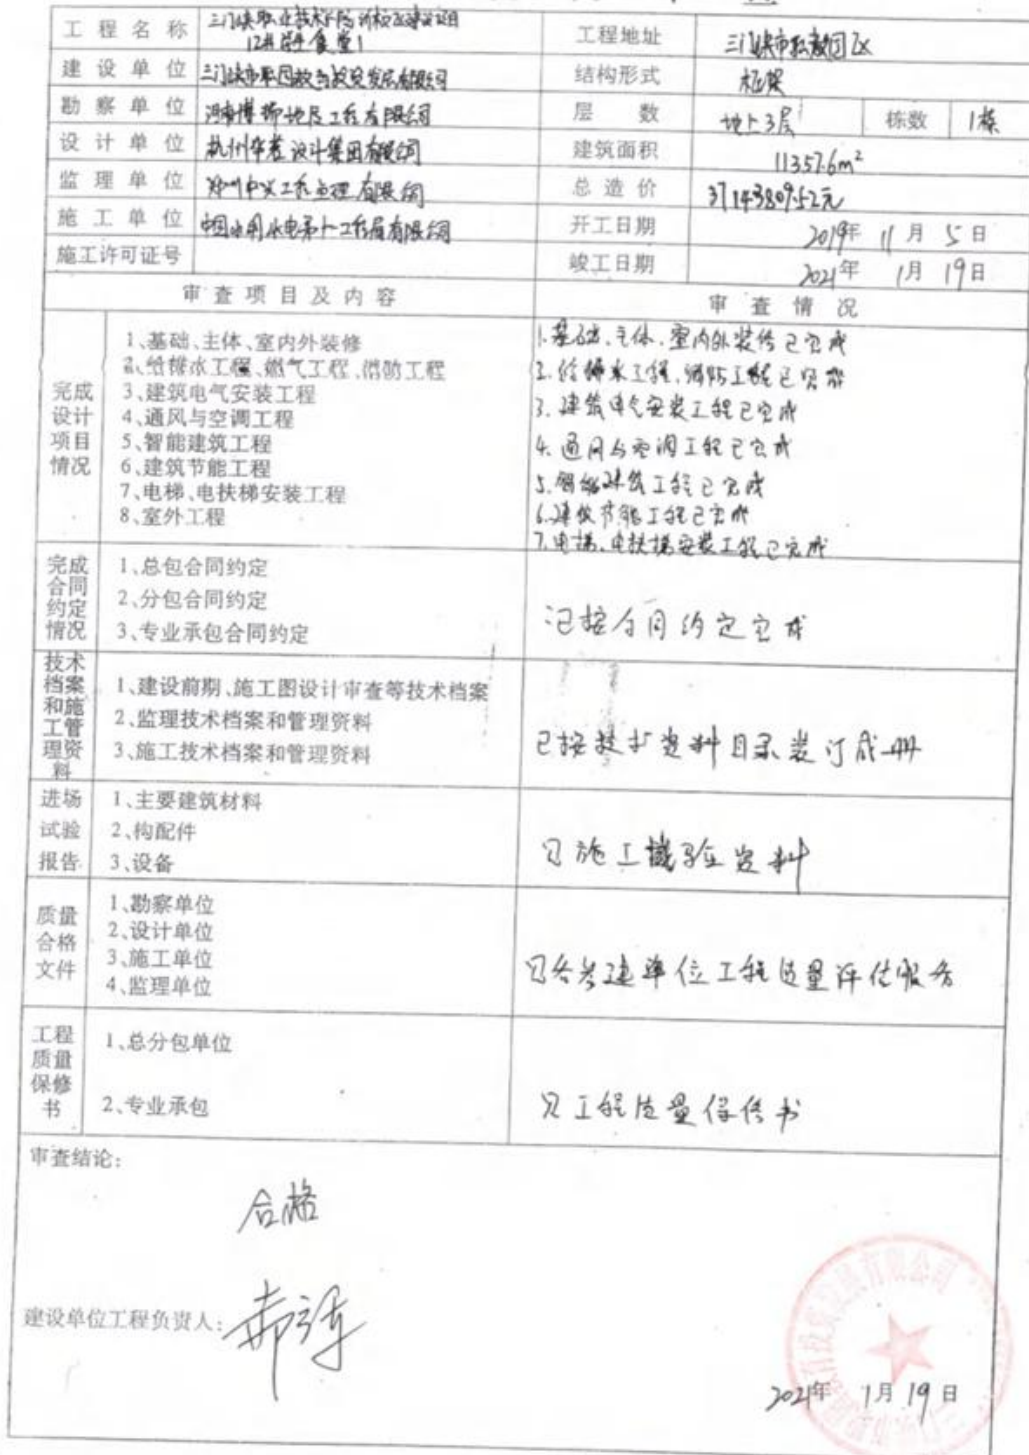 工程名称 三门峡职业技术学院新校区建设项目
12#学生食堂1
工程地址 三门峡市职教园区
建设单位 三门峡市职园教育投资发展有限公司
结构形式 框架
勘察单位 河南博 地 工程有限公司
层数 地上3层 栋数 1栋
设计单位 杭州华 设计集团有限公司
建筑面积 11357.6m²
监理单位 郑州中兴工程监理有限公司
总造价 37143809.52元
施工单位 中国水利水电第十一工程局有限公司
开工日期 2019年 11月 5日
施工许可证号
竣工日期 2021年 1月 19日
审查项目及内容 审查情况
完成
设计
项目
情况
1、基础、主体、室内外装修
2、给排水工程、燃气工程、消防工程
3、建筑电气安装工程
4、通风与空调工程
5、智能建筑工程
6、建筑节能工程
7、电梯、电扶梯安装工程
8、室外工程
1.基础、主体、室内外装修已完成
2.给排水工程、消防工程已完成
3.建筑电气安装工程已完成
4.通风与空调工程已完成
5.智能建筑工程已完成
6.建筑节能工程已完成
7.电梯、电扶梯安装工程已完成
完成
合同
约定
情况
1、总包合同约定
2、分包合同约定
3、专业承包合同约定
已按合同约定完成
技术
档案
和施
工管
理资
料
1、建设前期、施工图设计审查等技术档案
2、监理技术档案和管理资料
3、施工技术档案和管理资料
已按技术资料目录装订成册
进场
试验
报告
1、主要建筑材料
2、构配件
3、设备
见施工试验资料
质量
合格
文件
1、勘察单位
2、设计单位
3、施工单位
4、监理单位
见各参建单位工程质量评估报告
工程
质量
保修
书
1、总分包单位
2、专业承包
见工程质量保修书
审查结论：
合格
建设单位工程负责人：
2021年 1月 19日